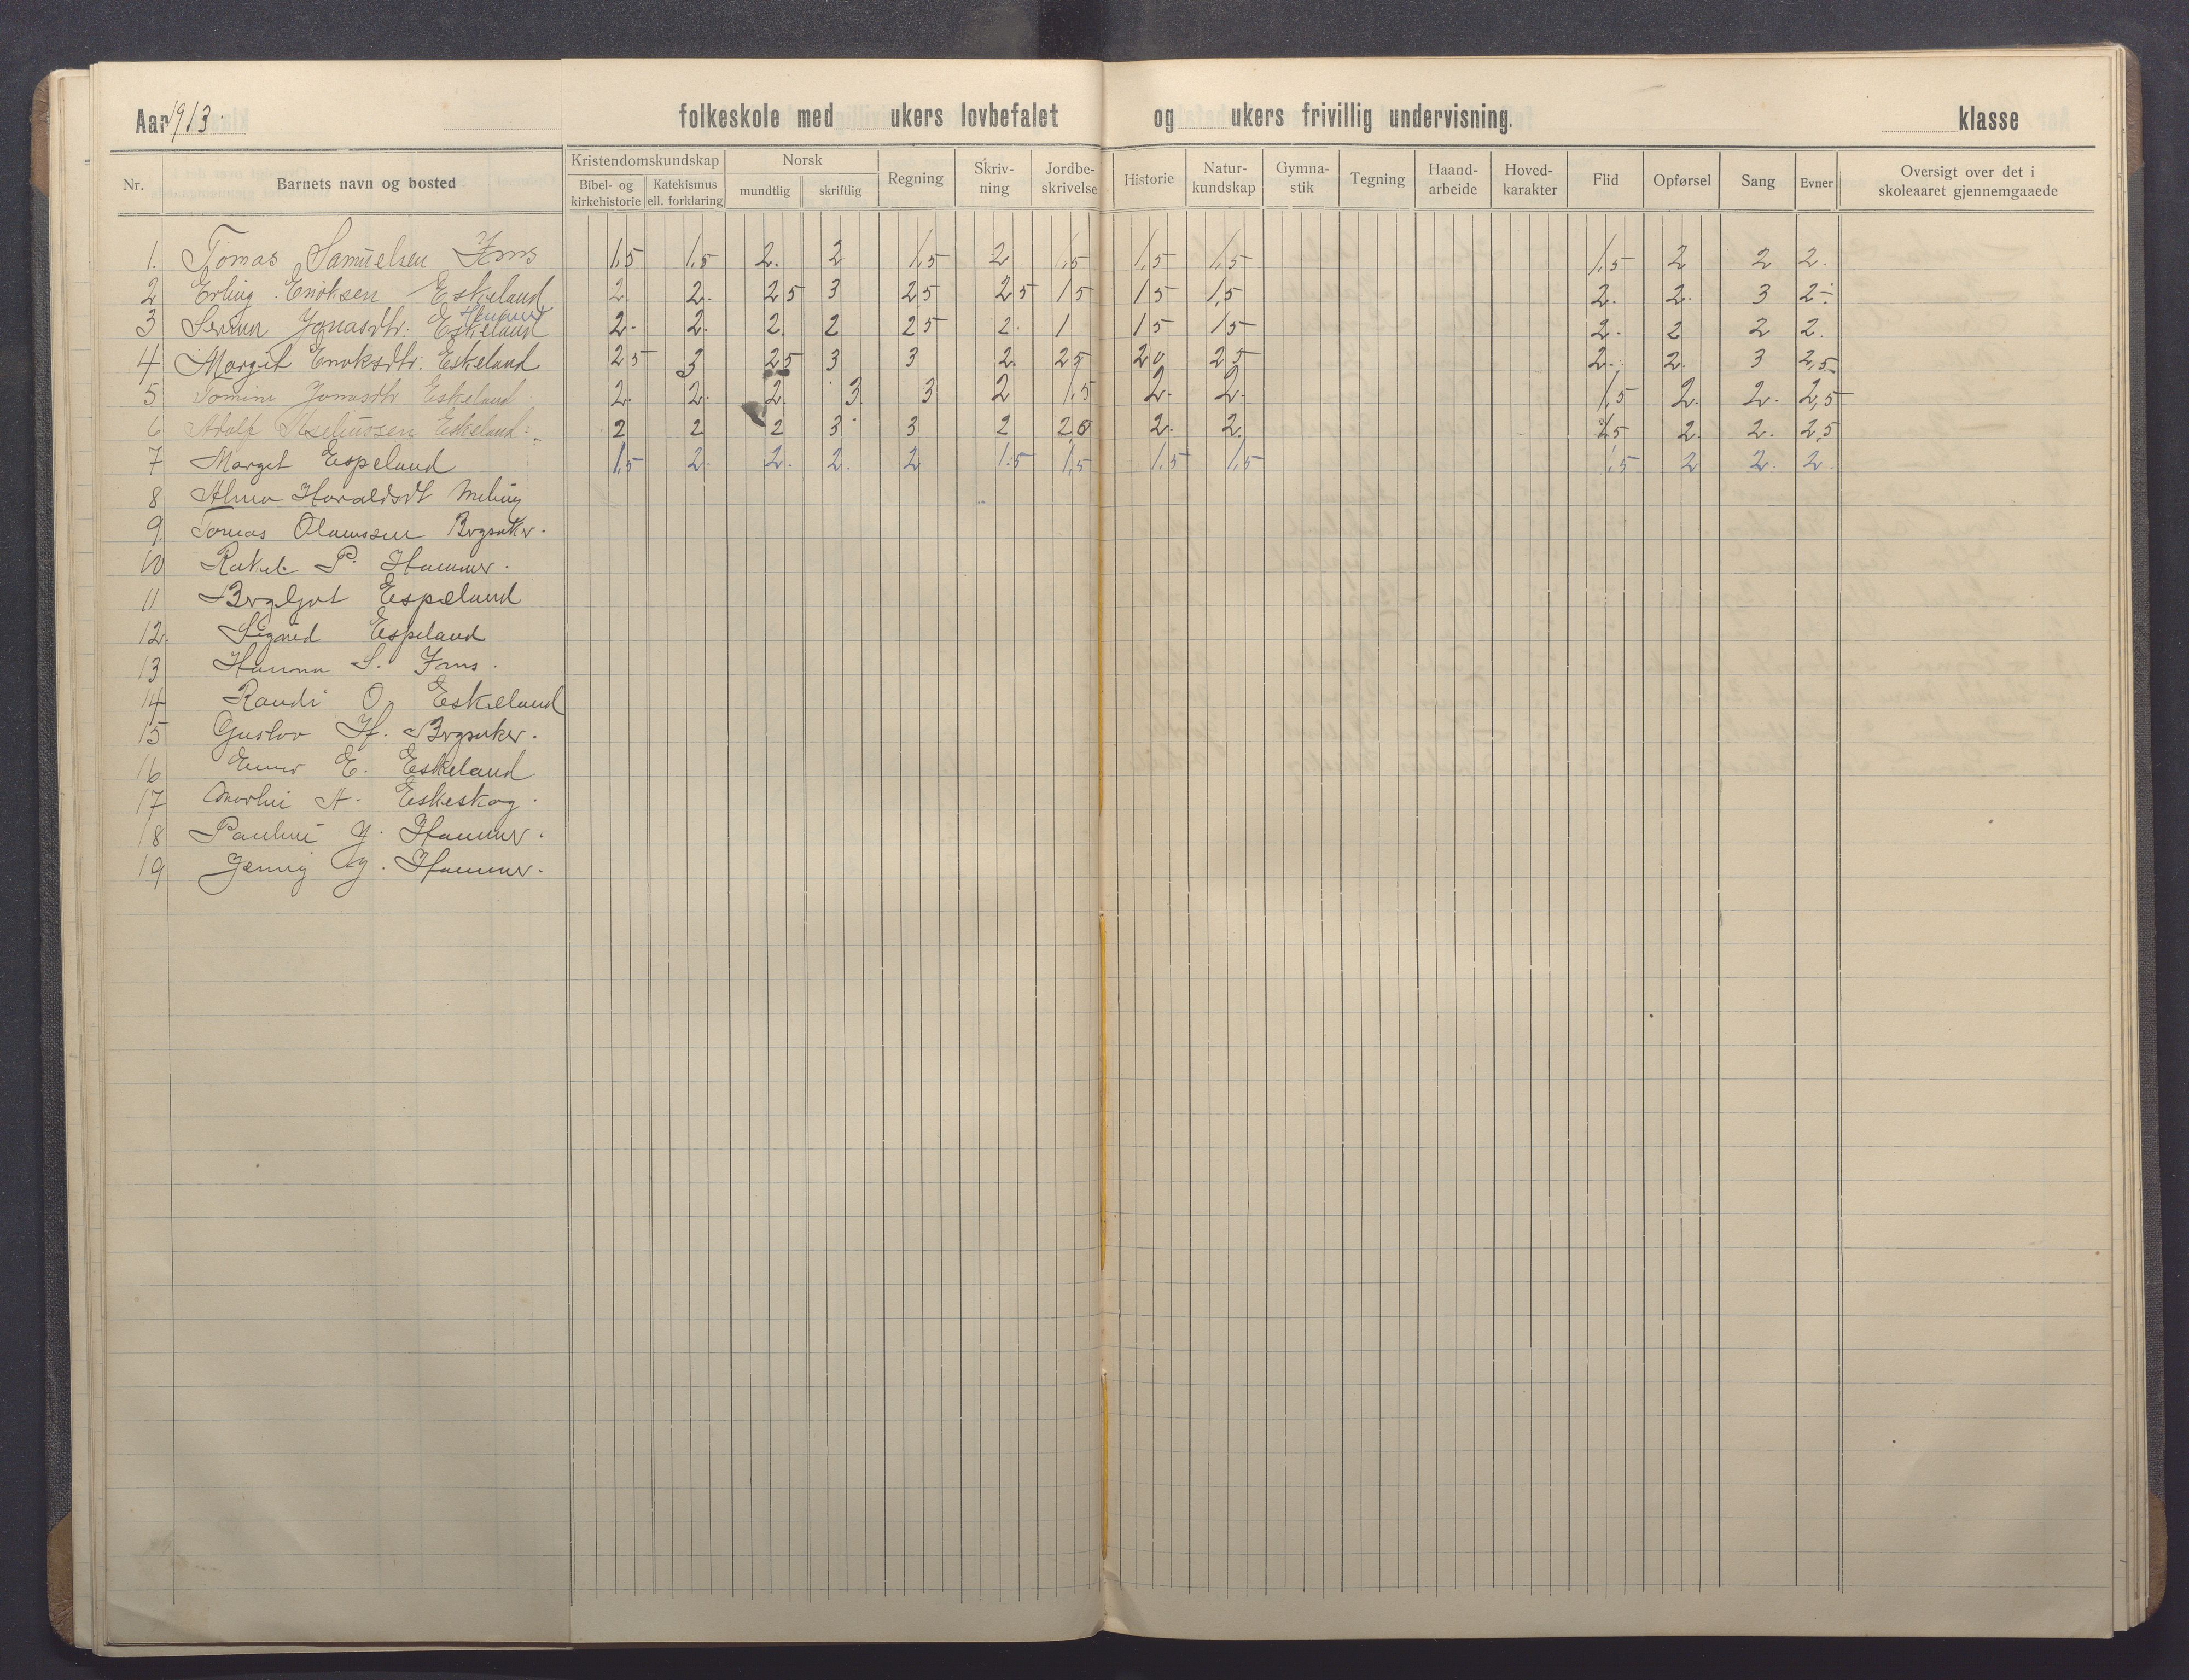 Aar 1913. folkeskole med ukers lovbefalet og ukers frivillig undervisning. klasse
Nr. Barnets navn og bosted Kristendomskundskap Bibel- og kirkehistorie Katekismus ell. forklaring Norsk mundtlig skriftlig Regning Skriv- ning Jordbe- skrivelse Historie Natur- kundskap Gymna- stik Tegning Haand- arbeide Hoved- karakter Flid Opførsel Sang Evner Oversigt over det i skoleaaret gjennemgaaede
1. Tomas Samuelsen Ims 1,5 1,5 2. 2 1,5 2 1,5 1,5 1,5 1,5 2 2 2.
2 Erling Enoksen Eskeland 2. 2. 25 3 25 25 15 15 1,5 2. 2. 3 2-
Hammer
3 Jonasdtr. Eskeland 2- 2. 2. 2 25 2. 1 15 15 2. 2 2 2.
4 Margit Enoksdtr. Eskeland 25 3 25 3 3 2. 25 20 25 2. 2. 3 2,5
5 Tomine Jonasdtr Eskeland 2. 2. 2. 3. 3 2 1,5 2. 2. 1,5 2. 2. 2,5
6 Adolf Eskeland 2 2 2 3 3 2 2,0 2. 2. 2. 2. 2,5
7 Marget Espeland 1,5 2. 2. 2. 2 1.5 1,5 1,5 1,5 1,5 2 2. 2.
8 Alma Haraldsdt Meling
9. Tomas Olaussen Bergsaker.
10 Rakel P. Hammer.
11 Bergljot Espeland
12. Signed Espeland
13 Hanna S. Ims.
14 Randi O. Eskeland
15 Gustav H. Bergsaker.
16 Einar E. Eskeland
17 A. Eskeskog.
18 Pauline G. Hammer.
19 Jenny G. Hammer.